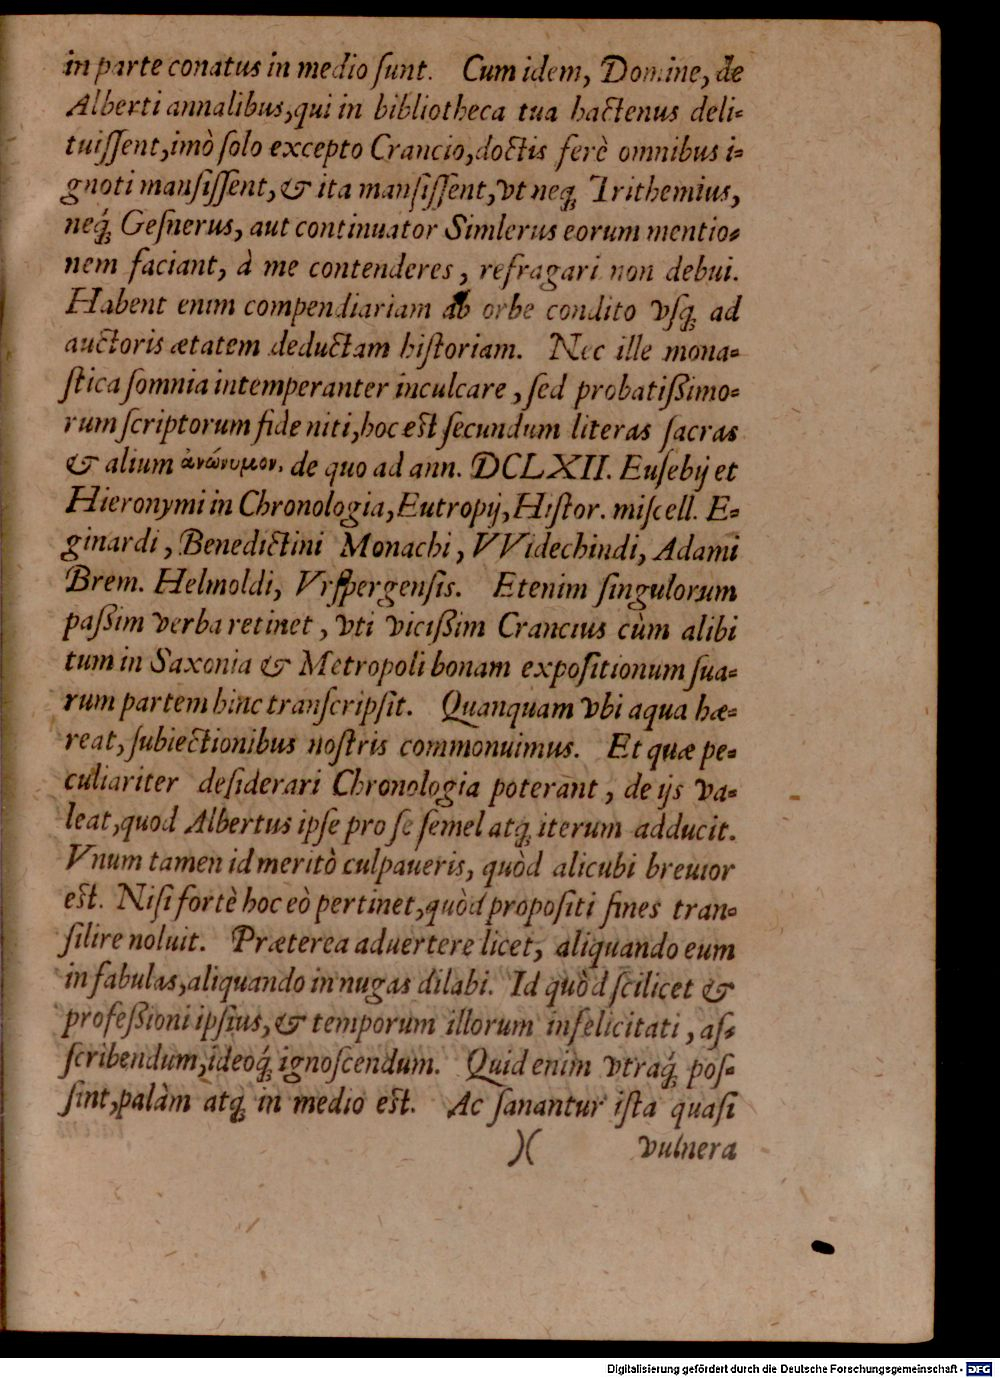 in parte conatus in medio ſunt. Cum idem, Domine, de
Alberti annalibus,qui in bibliotheca tua hactenus deli-
tuiſſent,imò ſolo excepto Crancio,doctis ferè omnibus i-
gnoti manſiſſent,& ita manſiſſent,vt neq; Trithemius,
neq́; Geſnerus, aut continuator Simlerus eorum mentio-
nem faciant, à me contenderes, refragari non debui.
Habent enim compendiariam ab orbe condito vſq; ad
auctoris ætatem deductam hiſtoriam. Nec ille mona-
ſtica ſomnia intemperanter inculcare, ſed probatißimo-
rum ſcriptorum fide niti,hoc est ſecundum literas ſacras
& alium ἀνώνυμον, de quo ad ann. DCLXII. Euſebij et
Hieronymi in Chronologia,Eutropij,Hiſtor. miſcell. E-
ginardi, Benedictini Monachi, VVidechindi, Adami
Brem. Helmoldi, Vrſpergenſis. Etenim ſingulorum
paßim verba retinet, vti vicißim Crancius cùm alibi
tum in Saxonia & Metropoli bonam expoſitionum ſua-
rum partem hinc tranſcripſit. Quanquam vbi aqua hæ-
reat,ſubiectionibus noſtris commonuimus. Et quæ pe-
culiariter deſiderari Chronologia poterant, de ijs va-
leat,quod Albertus ipſe pro ſe ſemel atq; iterum adducit.
Vnum tamen id meritò culpaueris, quòd alicubi breuior
est. Niſi fortè hoc eò pertinet,quòd propoſiti fines tran-
ſilire noluit. Præterea aduertere licet, aliquando eum
in fabulas,aliquando in nugas dilabi. Id quòd ſcilicet &
profeßioni ipſius,& temporum illorum infelicitati, aſ-
ſcribendum,ideoq́; ignoſcendum. Quid enim vtraq́; poſ-
ſint,palàm atq; in medio est. Ac ſanantur iſta quaſi
)( vulnera
Digitalisierung gefördert durch die Deutsche Forschungsgemeinschaft - DFG